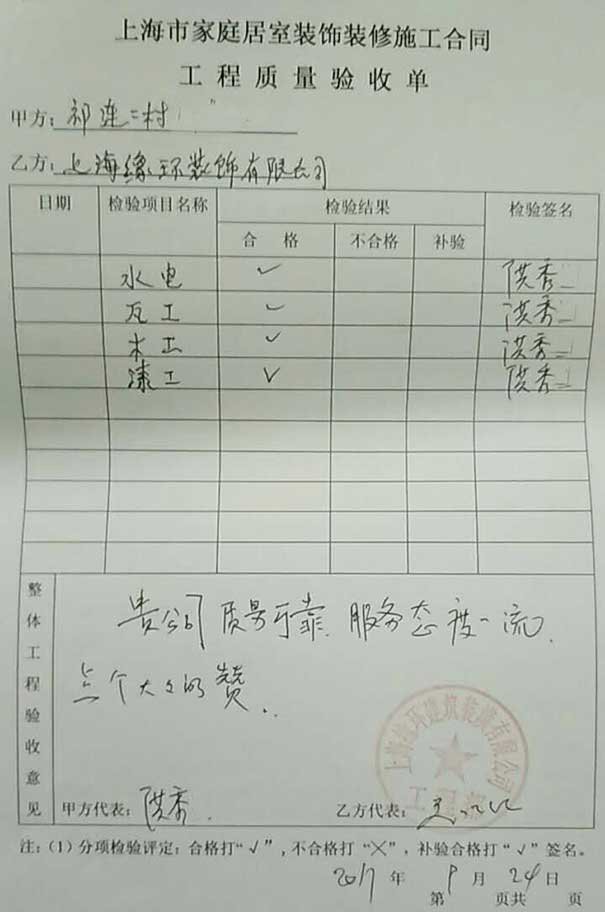 上海市家庭居室装饰装修施工合同
工程质量验收单
甲方：祁连二村
乙方：上海缘环装饰有限公司
日期 检验项目名称 检验结果 检验签名
合格 不合格 补验
水电 ✓ 洪秀
瓦工 ✓ 洪秀
木工 ✓ 洪秀
漆工 ✓ 洪秀
整体工程验收意见
贵公司质量可靠.服务态度一流.
点个大大的赞..
上海缘环建筑装潢有限公司
甲方代表：洪秀. 乙方代表：
注：（1）分项检验评定：合格打“√”，不合格打“×”，补验合格打“√”签名。
2017年9月24日
第 页共 页